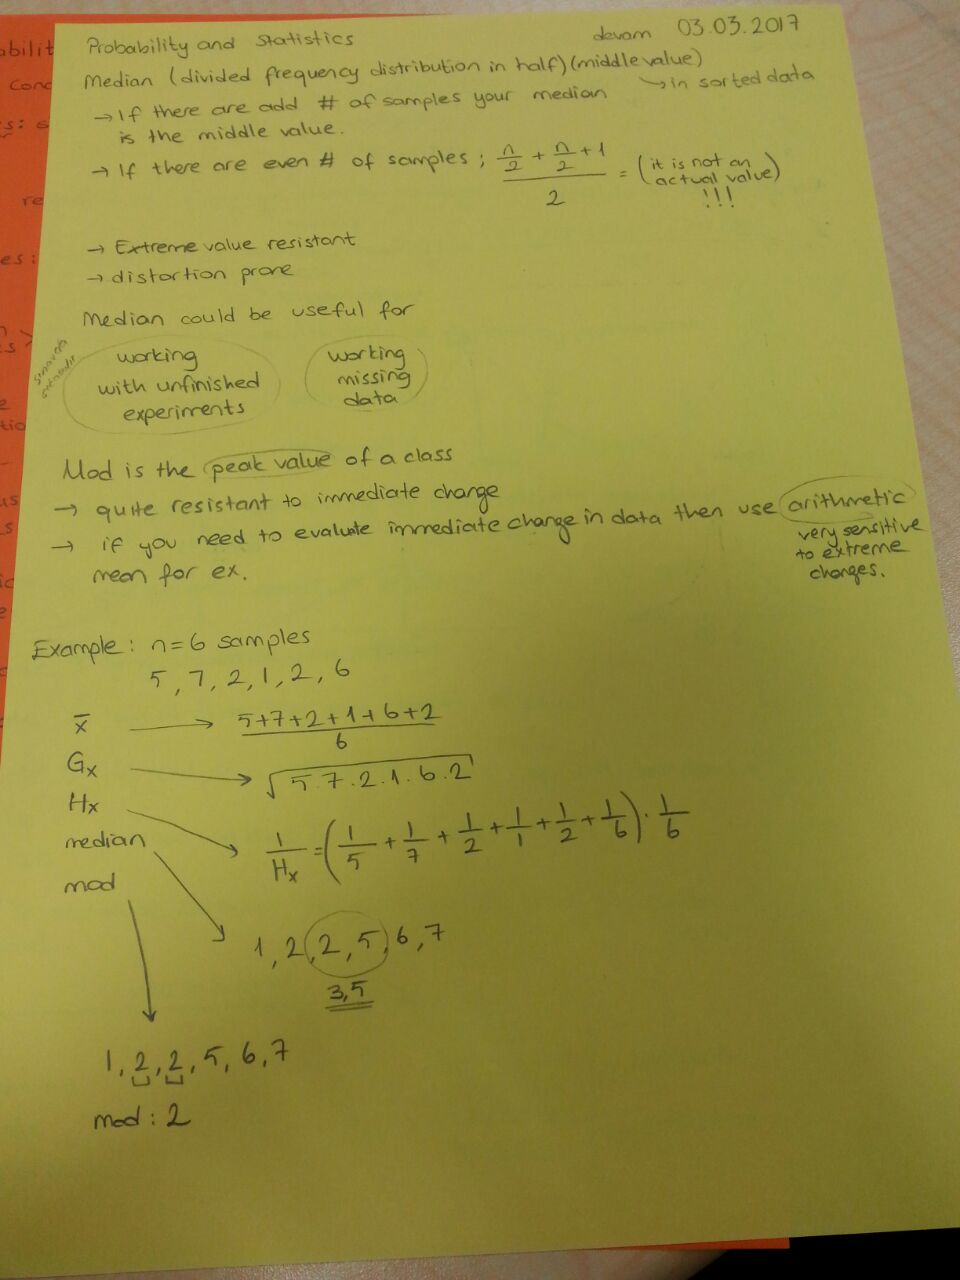 Probability and Statistics
devam 03.03.2017
Median (divided frequency distribution in half) (middle value)
→ in sorted data
→ If there are add # of samples your median
is the middle value.
→ If there are even # of samples ; (n/2 + n/2 + 1) / 2 = (it is not an actual value) !!!
→ Extreme value resistant
→ distortion prone
Median could be useful for
working
with unfinished
experiments
working
missing
data
Mod is the peak value of a class
→ quite resistant to immediate change
→ if you need to evaluate immediate change in data then use arithmetic
mean for ex.
very sensitive
to extreme
changes.
Example: n=6 samples
5, 7, 2, 1, 2, 6
x̄ → (5+7+2+1+6+2) / 6
Gx → √(5.7.2.1.6.2)
Hx → 1/Hx = (1/5 + 1/7 + 1/2 + 1/1 + 1/2 + 1/6) . 1/6
median
mod
1, 2, 2, 5, 6, 7
3,5
1, 2, 2, 5, 6, 7
mod : 2